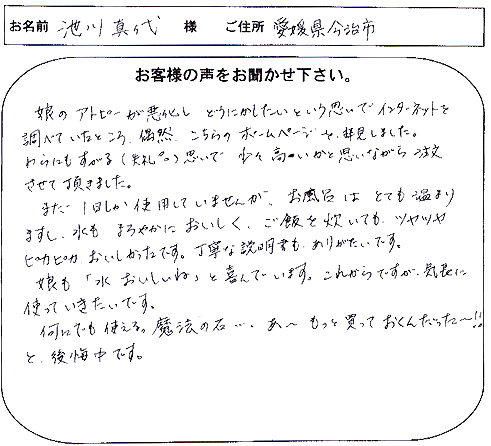 お名前 池川真代 様 ご住所 愛媛県今治市
お客様の声をお聞かせ下さい。
娘のアトピーが悪化し どうにかしたいという思いでインターネットを
調べていたところ、偶然、こちらのホームページを拝見しました。
わらにもすがる(失礼^o)思いで 少々高いかと思いながら注文
させて頂きました。
まだ1日しか使用していませんが、お風呂はとても温まり
ますし、水もまろやかにおいしく、ご飯を炊いても、ツヤツヤ
ピカピカ おいしかったです。丁寧な説明書も、ありがたいです。
娘も「水おいしいね」と喜んでいます。これからですが、気長に
使っていきたいです。
何にでも使える。魔法の石…、あ～もっと買っておくんだった～!!
と、後悔中です。